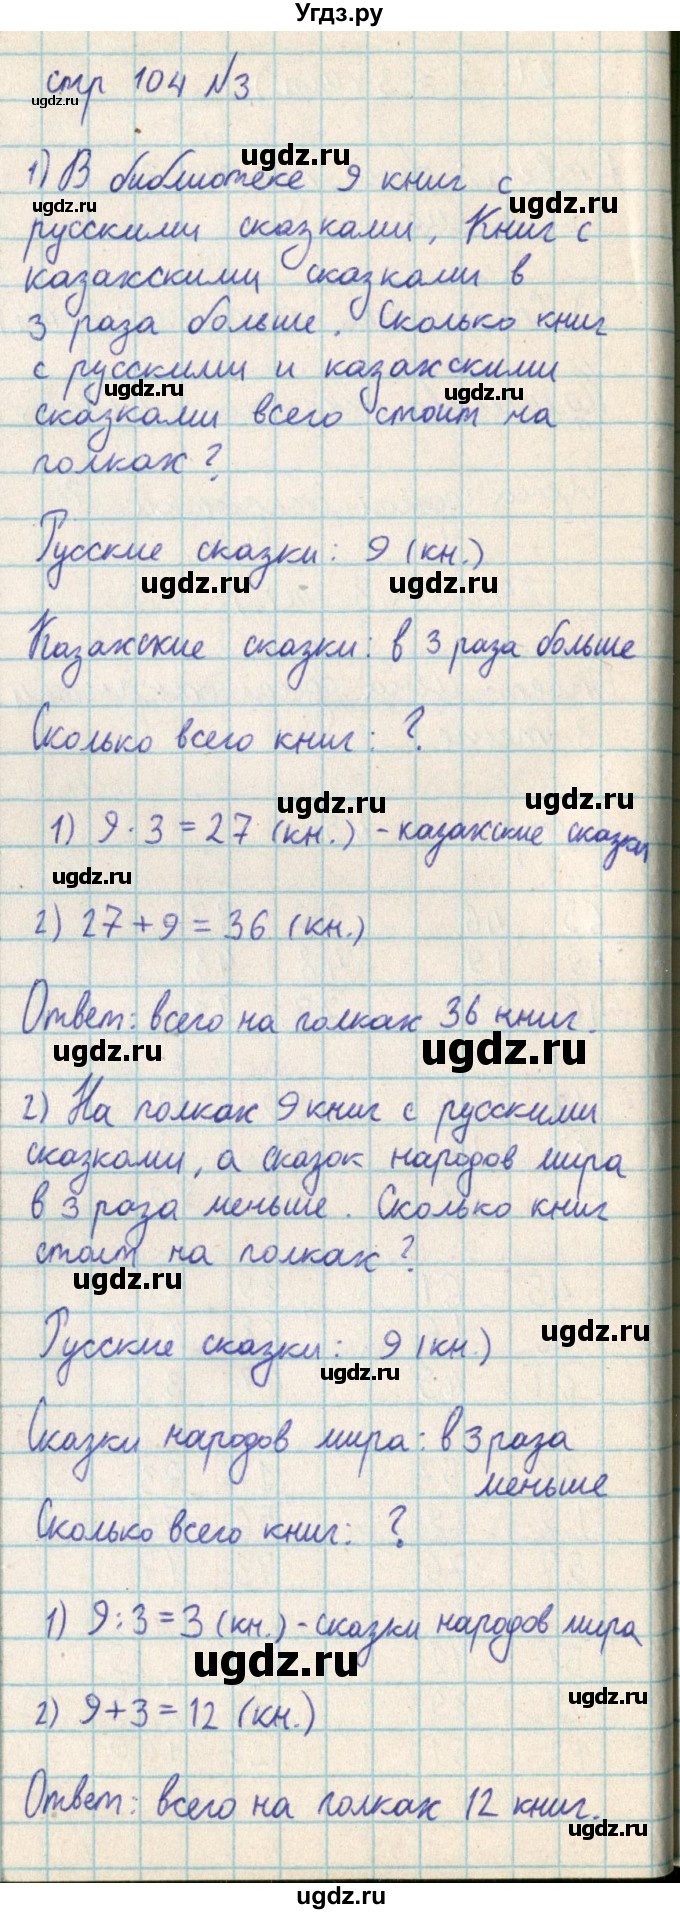 Угдз.ру
стр 104 №3
ugdz.ru
ugdz.ru
1) В библиотеке 9 книг с
ugdz.ru
ugdz.ru
русскими сказками. Книг с
казахскими сказками в
3 раза больше. Сколько книг
с русскими и казахскими
ugdz.ru
ugdz.ru
сказками всего стоит на
полках?
Русские сказки: 9 (кн.)
ugdz.ru
ugdz.ru
Казахские сказки: в 3 раза больше
Сколько всего книг: ?
ugdz.ru
ugdz.ru
1) 9·3=27 (кн.) - казахские сказки
ugdz.ru
2) 27+9=36 (кн.)
Ответ: всего на полках 36 книг.
ugdz.ru
ugdz.ru
2) На полках 9 книг с русскими
сказками, а сказок народов мира
в 3 раза меньше. Сколько книг
стоит на полках?
ugdz.ru
Русские сказки: 9 (кн.)
ugdz.ru
ugdz.ru
Сказки народов мира: в 3 раза
меньше
Сколько всего книг: ?
1) 9:3=3 (кн.) - сказки народов мира
ugdz.ru
ugdz.ru
2) 9+3=12 (кн.)
Ответ: всего на полках 12 книг.
ugdz.ru
ugdz.ru